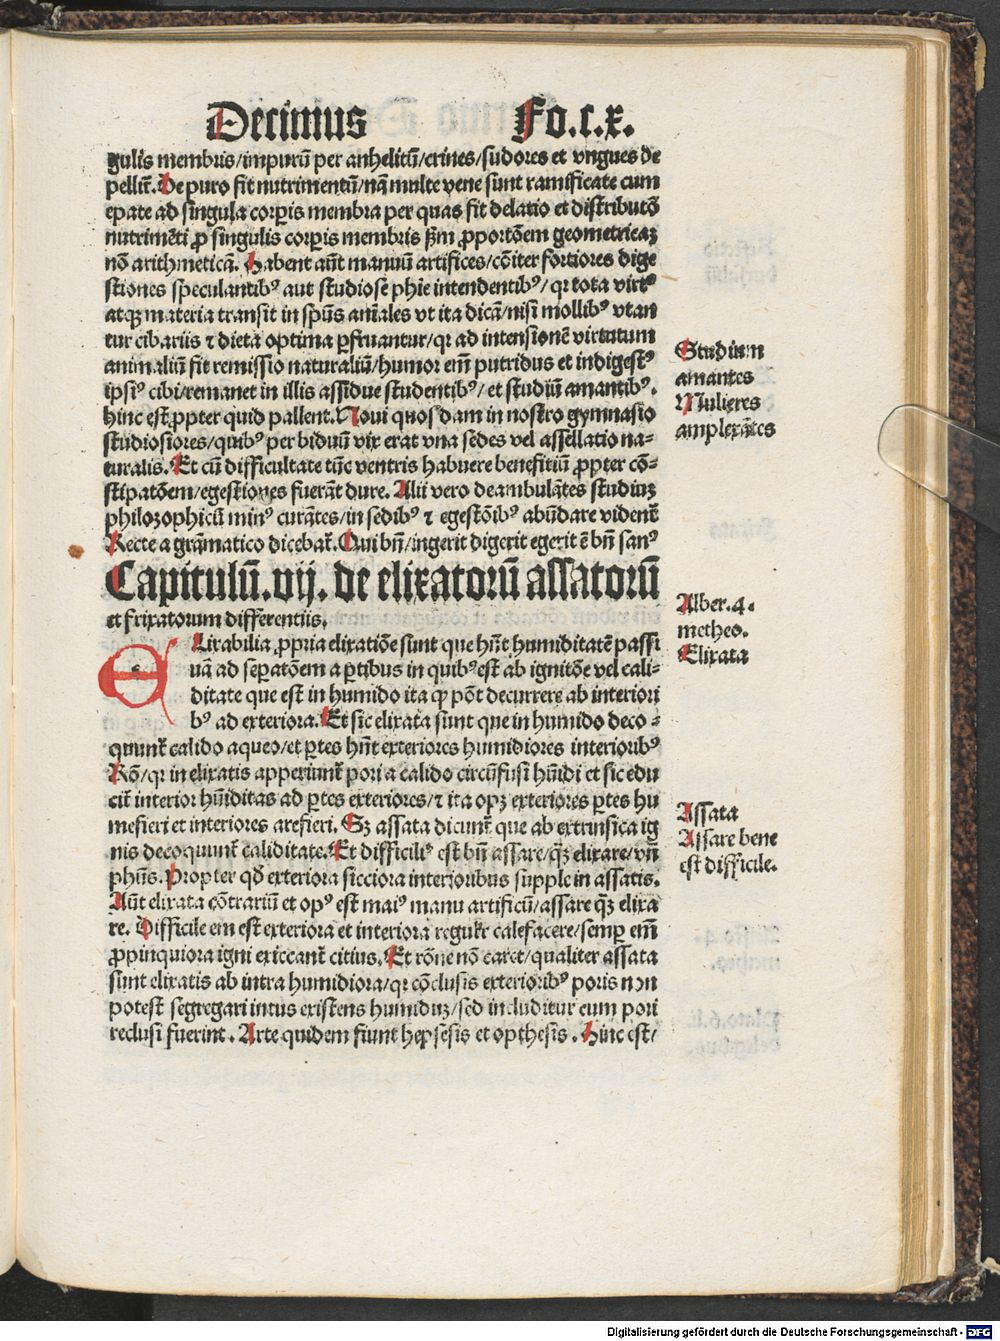 Decimus Fo.c.x.
gulis membris/impurū per anhelitū/crines/sudores et vngues de
pellit̄. De puro fit nutrimentū/nā multe vene sunt ramificate cum
epate ad singula corꝑis membra per quas fit delatio et distributō
nutrimēti ꝓ singulis corꝑis membris ꝓportōem geometricaꝫ
nō arithmeticā. Habent aūt manuū artifices/cōiter fortiores dige
stiones speculantibꝰ aut studiose phīe intendentibꝰ/qꝛ tota virtꝰ
atqꝫ materia transit in spūs aīales vt ita dicā/nisi mollibꝰ vtan
tur cibariis ⁊ dieta optima ꝑfruantur/qꝛ ad intensionē virtutum
animaliū fit remissio naturaliū/humor em̄ putridus et indigestꝰ
ipsiꝰ cibi/remanet in illis assidue studentibꝰ/et studiū amantibꝰ.
hinc est ꝓpter quid pallent. Noui quosdam in nostro gymnasio
studiosiores/quibꝰ per biduū vix erat vna sedes vel assellatio na-
turalis. Et cū difficultate tūc ventris habuere benefitiū ꝓpter cō-
stipatōem/egestiones fuerāt dure. Alii vero deambulātes studiuꝫ
philozophicū minꝰ curātes/in sedibꝰ ⁊ egestōibꝰ abūdare vident̄
Recte a grāmatico dicebat̄. Qui bn̄/ingerit digerit egerit ē bn̄ sanꝰ
Capitulū.vij. de elixatorū assatorū
et frixatorum differentiis.
ELixabilia ꝓpria elixatiōe sunt que hn̄t humiditatē passi
uā ad seꝑatōem a ꝑtibus in quibꝰ est ab ignitōe vel cali-
ditate que est in humido ita ꝙ pōt decurrere ab interiori
bꝰ ad exteriora. Et sic elixata sunt que in humido deco-
quunt̄ calido aqueo/et ꝑtes hn̄t exteriores humidiores interioribꝰ
Rō/qꝛ in elixatis apperiunt̄ pori a calido circūfusi hūidi et sic edu
cit̄ interior hūiditas ad ꝑtes exteriores/⁊ ita opꝫ exteriores ꝑtes hu
mefieri et interiores arefieri. Sꝫ assata dicunt̄ que ab extrinsica ig
nis decoquunt̄ caliditate. Et difficiliꝰ est bn̄ assare/qꝫ̄ elixare/vn̄
phūs. Propter qd̄ exteriora sicciora interioribus supple in assatis.
Aūt elixata cōtrariū et opꝰ est maiꝰ manu artificū/assare qꝫ̄ elixa
re. Difficile em est exteriora et interiora regulr̄ calefacere/semꝑ em̄
ꝓpinquiora igni exiccant̄ citius. Et rōne nō caret/qualiter assata
sunt elixatis ab intra humidiora/qꝛ cōclusis exterioribꝰ poris non
potest segregari intus existens humiduꝫ/sed includitur cum pori
reclusi fuerint. Arte quidem fiunt hepsesis et opthesis. Hinc est/
Studium
amantes
Mulieres
amplexātes
Alber.4.
metheo.
Elixata
Assata
Assare bene
est difficile.
Digitalisierung gefördert durch die Deutsche Forschungsgemeinschaft - DFG